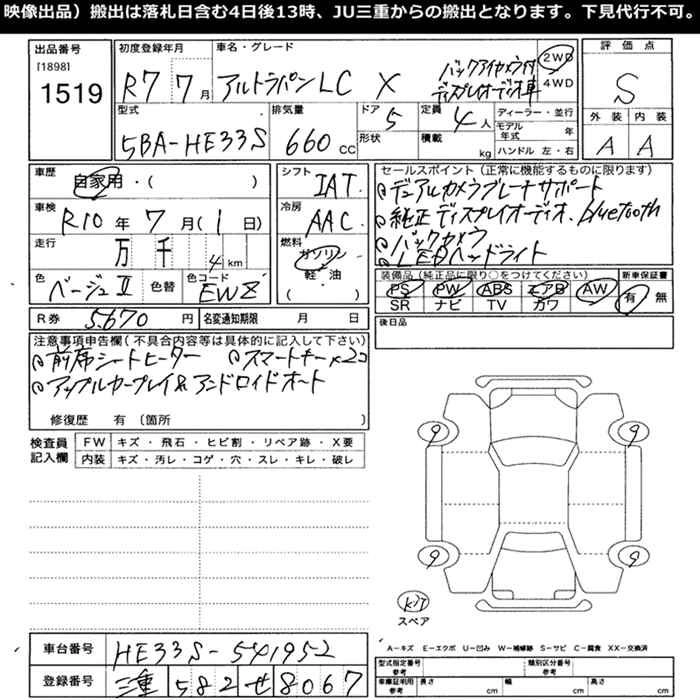 映像出品）搬出は落札日含む4日後13時、JU三重からの搬出となります。下見代行不可。
出品番号 初度登録年月 車名・グレード 評価点
[1898]
1519 R7 7月 アルトラパンLC X バックアイカメラ付 ディスプレイオーディオ車 2WD 4WD S
型式 排気量 ドア 定員 ディーラー・並行 外装 内装
5BA-HE33S 660 cc 5 4人 モデル年式 年 A A
形状 積載 kg ハンドル 左・右
車歴 自家用・( ) シフト IAT セールスポイント（正常に機能するものに限ります）
デュアルカメラブレーキサポート
車検 R10年 7月( 1日) 冷房 AAC 純正ディスプレイオーディオ.bluetooth
走行 万 千 4 km 燃料 ガソリン 軽・油 ( ) バックカメラ
LEDヘッドライト
色 ベージュII 色替 色コード EWZ 装備品（純正品に限り○をつけてください） 新車保証書
PS PW ABS エアB AW 有 無
SR ナビ TV カワ
R券 5,670円 名変通知期限 月 日 後日品
注意事項申告欄（不具合内容等は具体的に記入して下さい）
前席シートヒーター スマートキーx2コ
アップルカープレイ&アンドロイドオート
修復歴 有 〔箇所 〕
検査員記入欄 FW キズ・飛石・ヒビ割・リペア跡・X要
内装 キズ・汚レ・コゲ・穴・スレ・キレ・破レ
9 9
9 9
kit
スペア
車台番号 HE33S-541952
A-キズ E-エクボ U-凹み W-補修跡 S-サビ C-腐食 XX-交換済
登録番号 三重 582 せ 8067
型式指定番号 参考 類別区分番号 参考
車庫証明用 参考 長さ cm 幅 cm 高さ cm